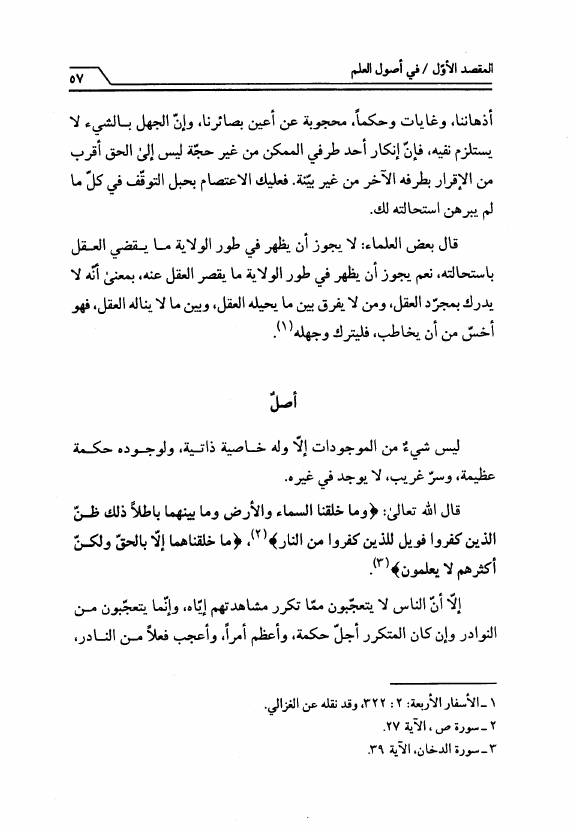 المقصد الأوّل / في أصول العلم
٥٧
أذهاننا، وغايات وحكماً، محجوبة عن أعين بصائرنا، وإنّ الجهل بـالشيء لا
يستلزم نفيه، فإنّ إنكار أحد طرفي الممكن من غير حجّة ليس إلىٰ الحق أقرب
من الإقرار بطرفه الآخر من غير بيّنة. فعليك الاعتصام بحبل التوقّف في كلّ ما
لم يبرهن استحالته لك.
قال بعض العلماء: لا يجوز أن يظهر في طور الولاية مـا يـقضي العـقل
باستحالته، نعم يجوز أن يظهر في طور الولاية ما يقصر العقل عنه، بمعنىٰ أنّه لا
يدرك بمجرّد العقل، ومن لا يفرق بين ما يحيله العقل، وبين ما لا يناله العقل، فهو
أخسّ من أن يخاطب، فليترك وجهله(١).
أصلٌ
ليس شيءٌ من الموجودات إلّا وله خـاصية ذاتـية، ولوجـوده حكـمة
عظيمة، وسرّ غريب، لا يوجد في غيره.
قال الله تعالىٰ: ﴿وما خلقنا السماء والأرض وما بينهما باطلاً ذلك ظـنّ
الذين كفروا فويل للذين كفروا من النار﴾(٢)، ﴿ما خلقناهما إلّا بالحقّ ولكـنّ
أكثرهم لا يعلمون﴾(٣).
إلّا أنّ الناس لا يتعجّبون ممّا تكرر مشاهدتهم إيّاه، وإنّما يتعجّبون مـن
النوادر وإن كان المتكرر أجلّ حكمة، وأعظم أمراً، وأعجب فعلاً مـن النـادر،
١ ـ الأسفار الأربعة: ٢: ٣٢٢، وقد نقله عن الغزالي.
٢ ـ سورة ص ، الآية ٢٧.
٣ ـ سورة الدخان، الآية ٣٩.